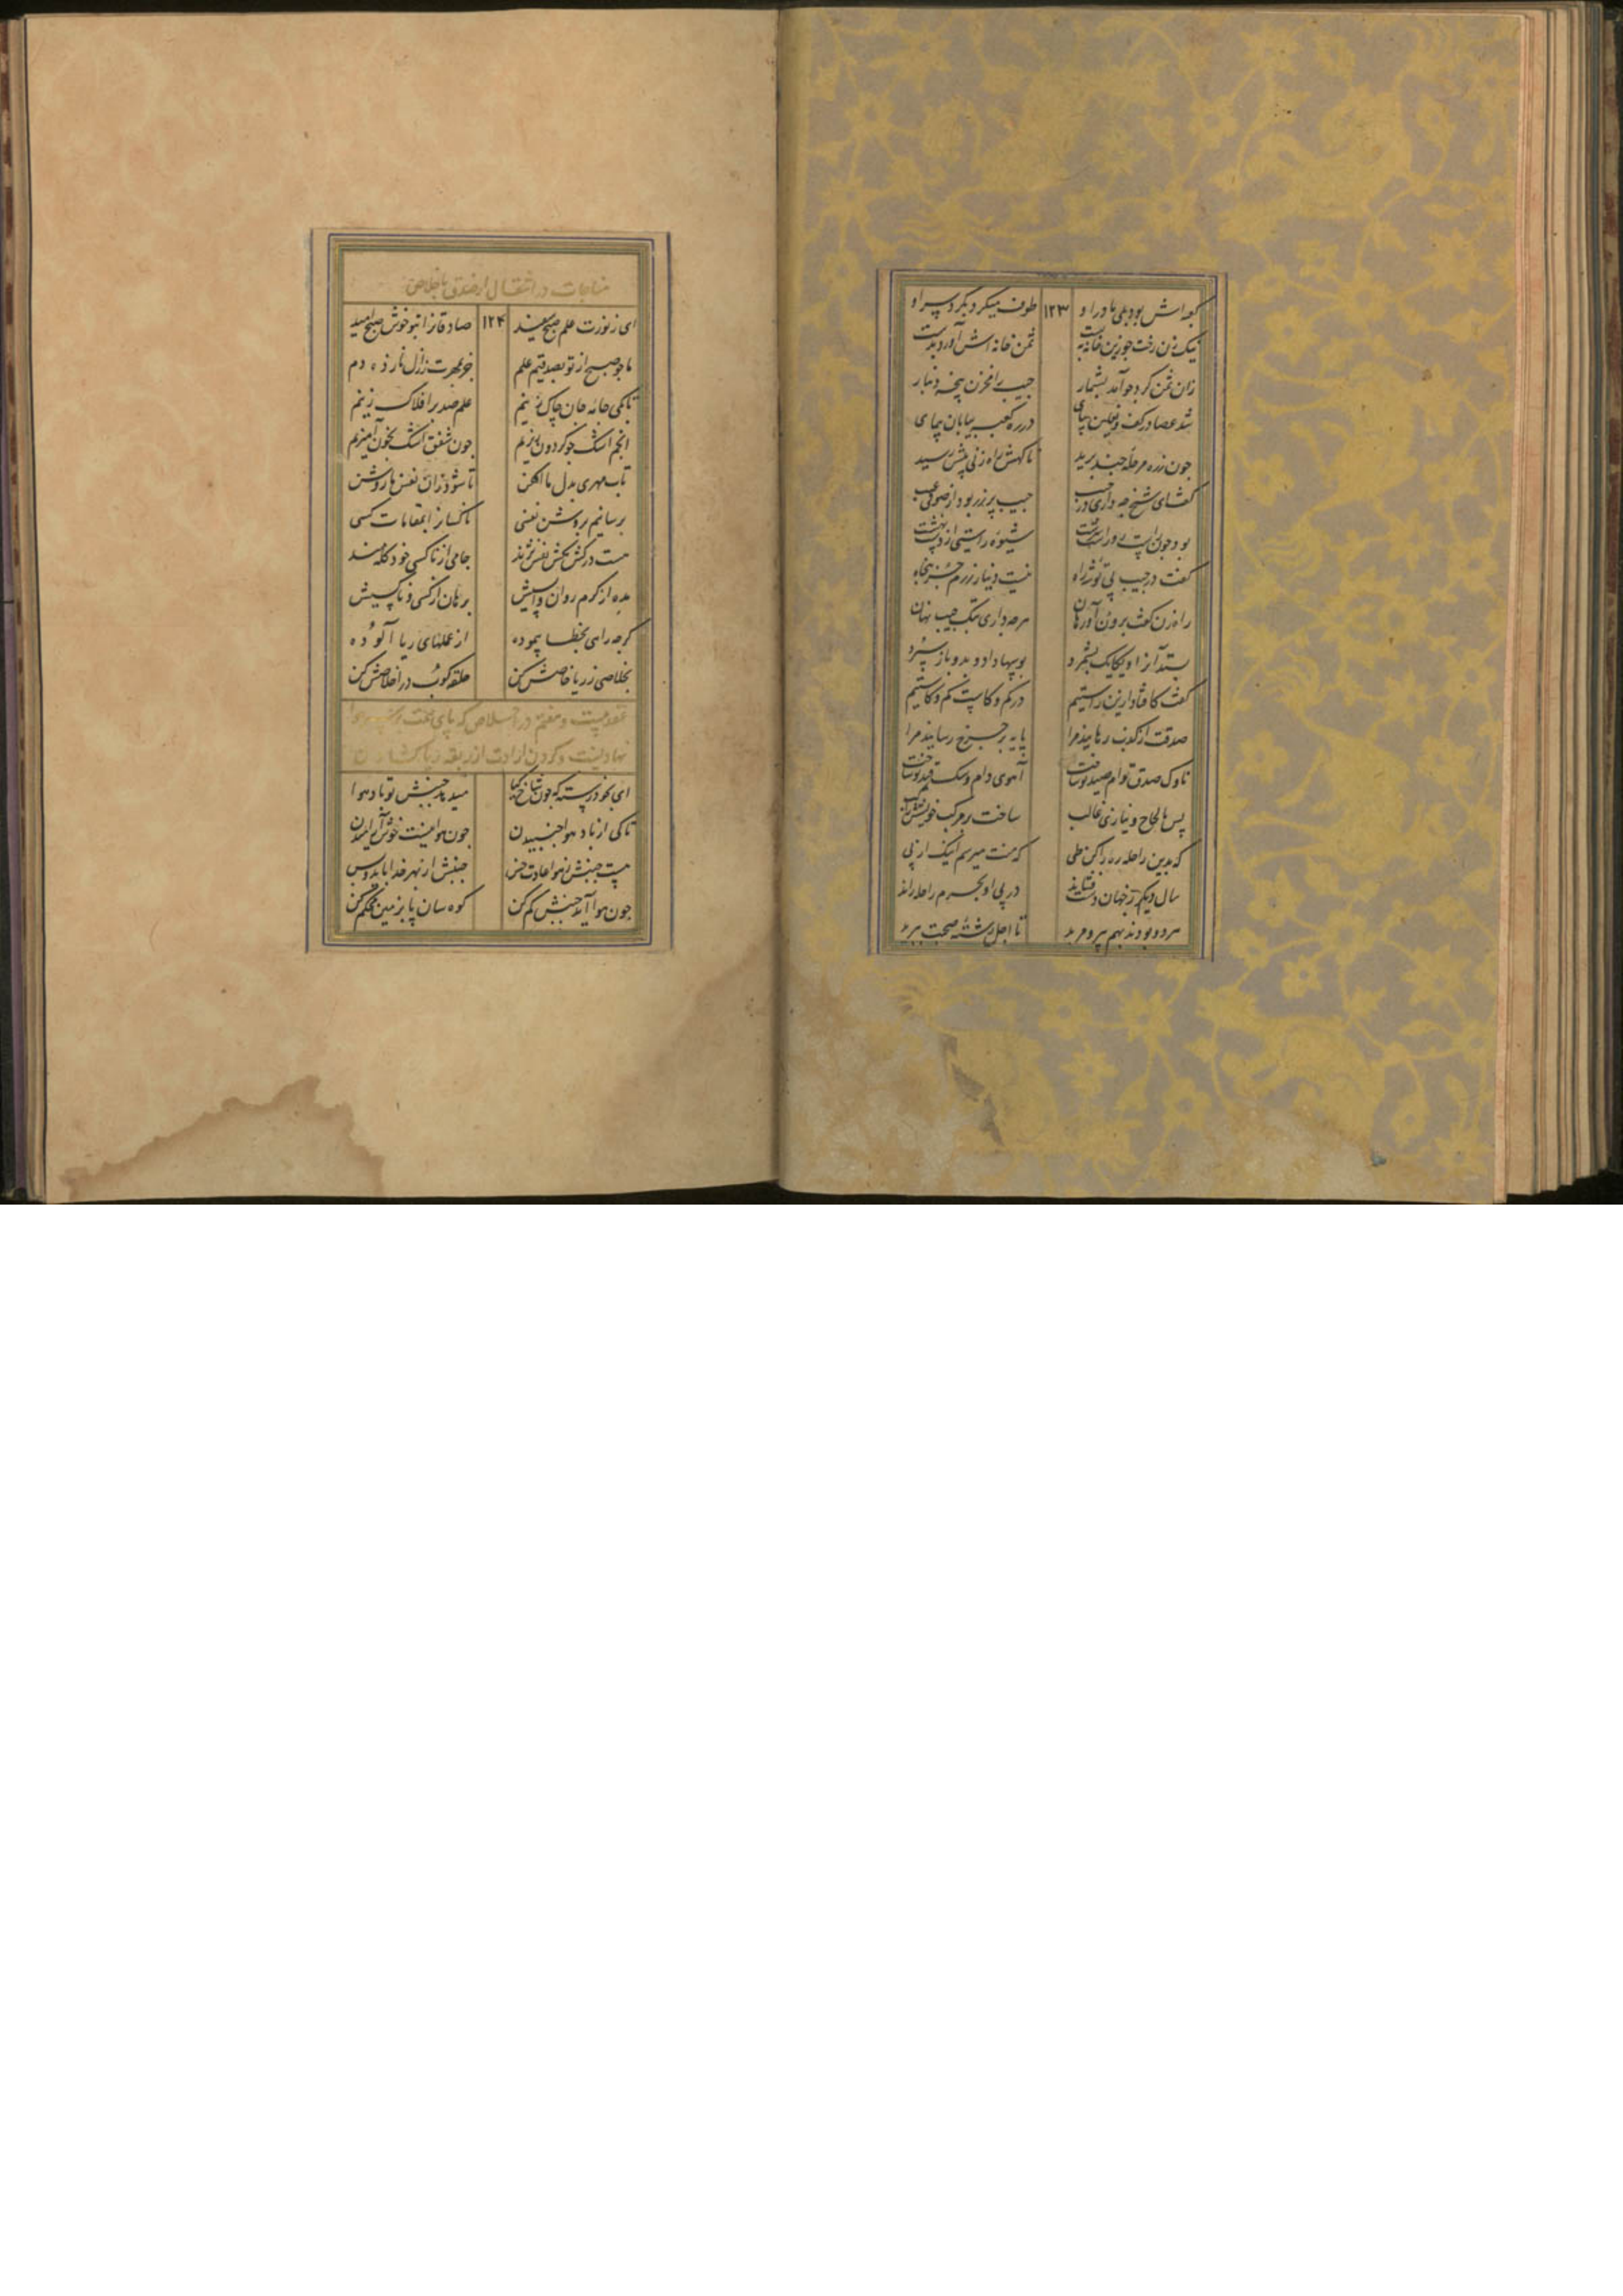 کعبه اش بود بلی مادر او ۱۲۳ طوف میکرد بگرد سر او
نیک زن رخت چو زین خانه ببست ثمن خانه اش آورد بدست
زان ثمن کرد چو آمد بشمار جیب را مخزن پنجه دینار
شد عصا در کف و نعلین بپای در ره کعبه بیابان پیمای
چون ز ره مرحله چند برید ناکهش راه زنی پیش رسید
کفت ای شیخ چه داری در جیب جیب پر زر بود از صوفی عیب
بود چون راست رو راست سرشت شیوه راستی از دست نهشت
کفت در جیب پی توشه راه نیست دینار زرم جز پنجاه
راه زن کفت برون آور هان هر چه داری بتک جیب نهان
بستد آنرا و یکایک بشمرد بوسها داد و بدو باز سپرد
کفت کافتاد ازین راستیم در کم و کاست کم و کاستیم
صدقت از کذب رهانید مرا پایه بر چرخ رسانید مرا
ناوک صدق توام صید تو ساخت آهوی دام و سک قید تو ساخت
پس بالحاح و نیازی غالب ساخت بر مرکب خویشش راکب
که بدین راحله ره را کن طی که منت میرسم اینک از پی
سال دیکر ز جهان دست فشاند در پی او بحرم راحله راند
هر دو بودند بهم پیر و مرید تا اجل رشته صحبت ببرید
مناجات در انتقال از صدق باخلاص
ای ز نورت علم صبح سفید ۱۲۴ صادقانرا بتو خوش صبح امید
ما چو صبح از تو بصدقیم علم جز بمهرت ز ازل نا زده دم
تا کی جامه جان چاک زنیم علم صدق بر افلاک زنیم
انجم اشک چو کردون ریزیم چون شفق اشک بخون آمیزیم
تاب مهری بدل ما افکن تا شود زان نفس ما روشن
برسانیم بروشن نفسی ناکسانرا بمقامات کسی
هست در کش مکش نفس نژند جامی از ناکسی خود کله مند
بده از کرم روان واییش برهان از کسی و ناکسیش
کرچه راهی بخطا پیموده از عملهای ریا آلوده
بخلاصی ز ریا خاصش کن حلقه کوب در اخلاصش کن
عقد بیست و هفتم در اخلاص که پای همت بر سر هوا
نهادنست و کردن ارادت از ربقه ریا کشادن
ای بخود رسته که چون شاخ کیا میدهد جنبش تو باد هوا
تا کی از باد هوا جنبیدن چون هوا نیست خوش آرامیدن
هست جنبش ز هوا عادت خس جنبش از بهر خدا باید و بس
چون هوا آید جنبش کم کن کوه سان پا بزمین محکم کن